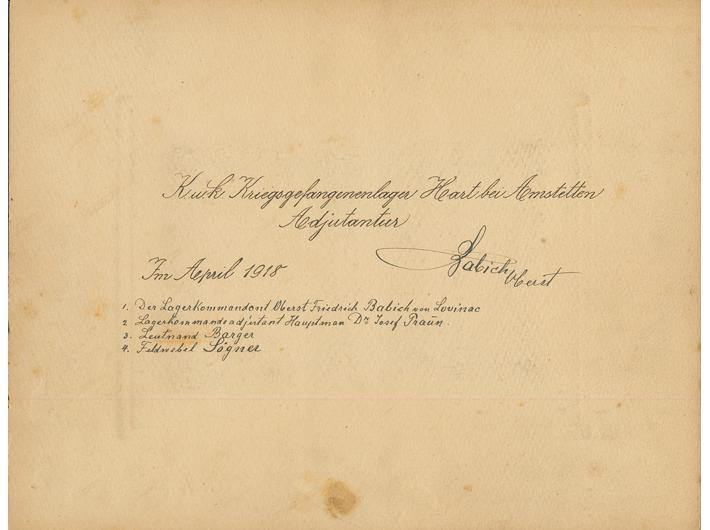 K.u.k. Kriegsgefangenenlager Hart bei Amstetten
Adjutantur
Babich Oberst
Im April 1918
1. Der Lagerkommandant Oberst Friedrich Babich von Lovinac
2 Lagerkommandoadjutant Hauptman Dr. Josef Praun.
3. Leutnand Barger
4. Feldwebel Sögner